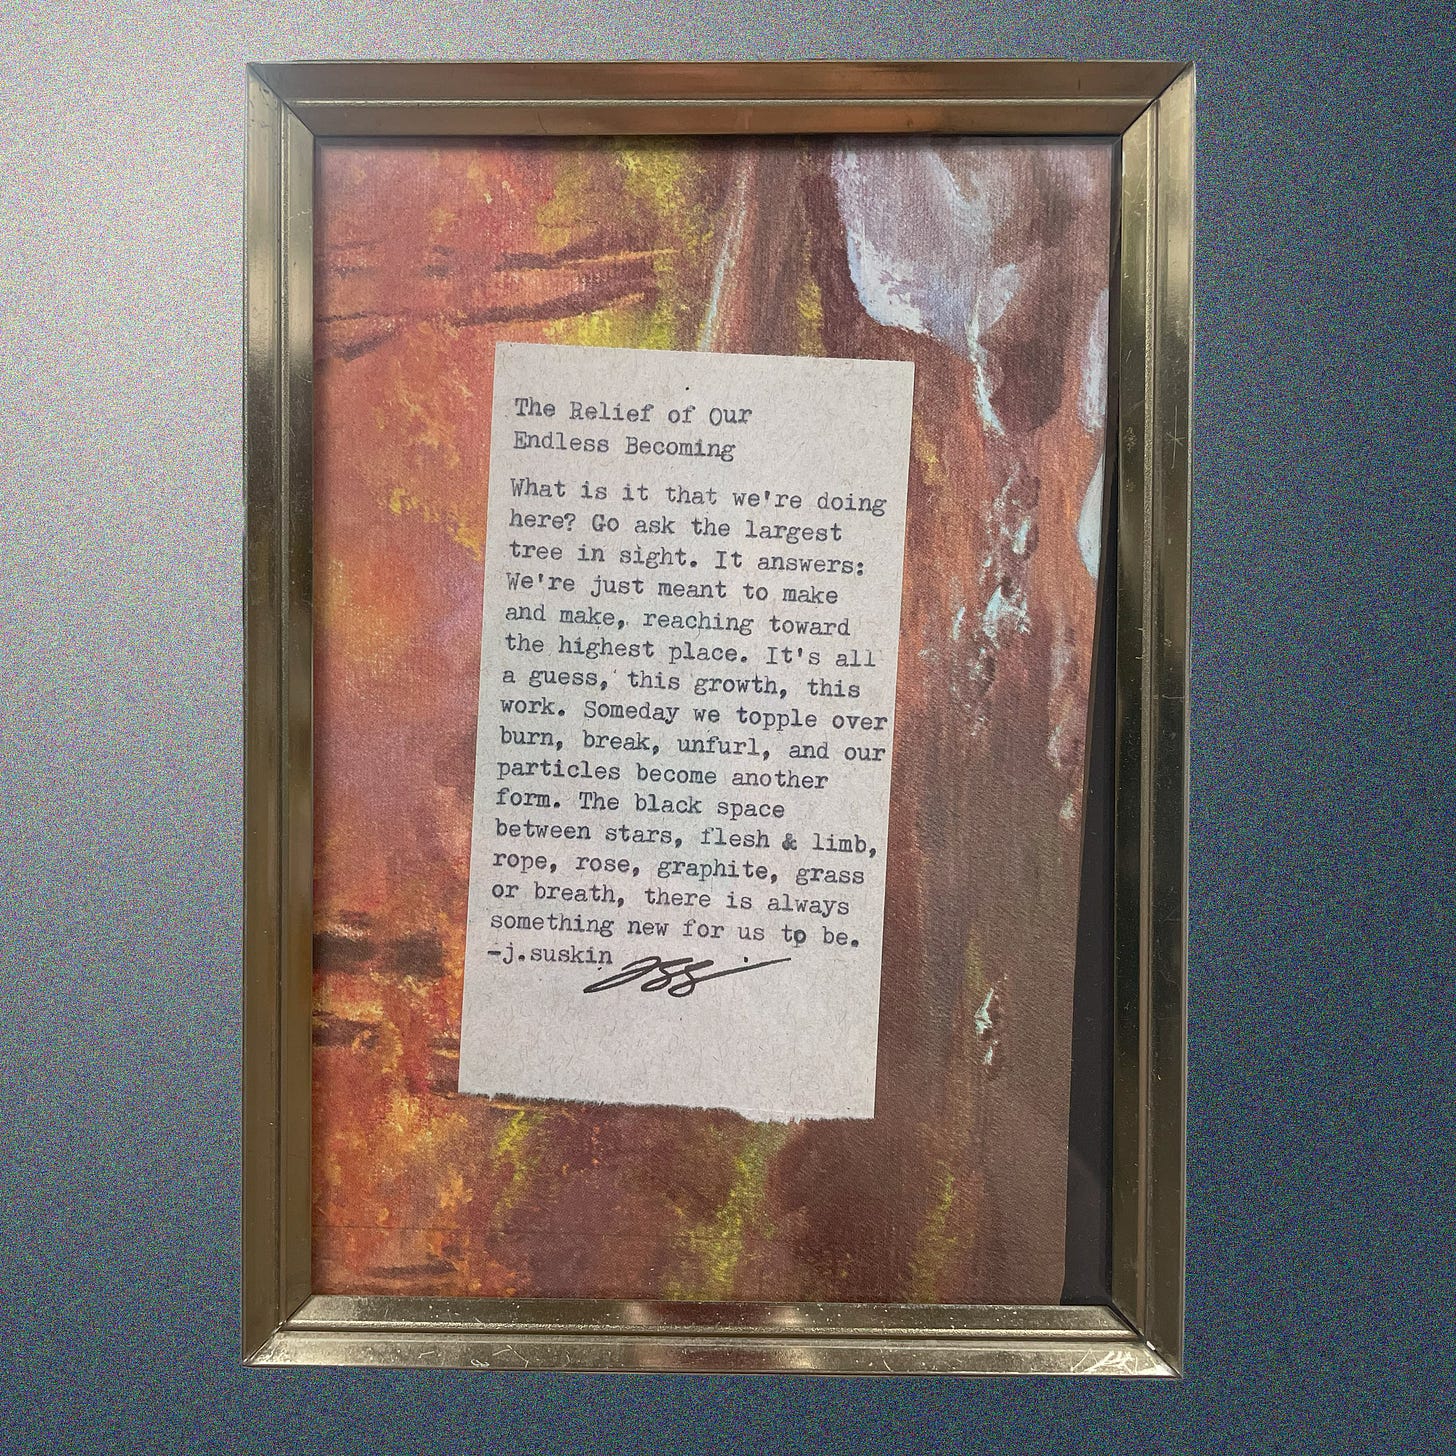 The Relief of Our
Endless Becoming
What is it that we're doing
here? Go ask the largest
tree in sight. It answers:
We're just meant to make
and make, reaching toward
the highest place. It's all
a guess, this growth, this
work. Someday we topple over
burn, break, unfurl, and our
particles become another
form. The black space
between stars, flesh & limb,
rope, rose, graphite, grass
or breath, there is always
something new for us to be.
-j.suskin